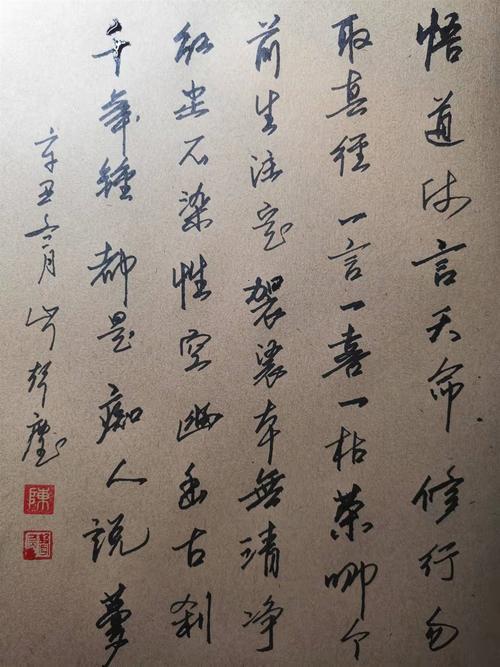 悟道休言天命修行勿
取真经一言一喜一枯荣哪个
前生注定袈裟本無清净
红尘不染性空幽幽古刹
千年鍾都是痴人説夢
辛丑六月
陳